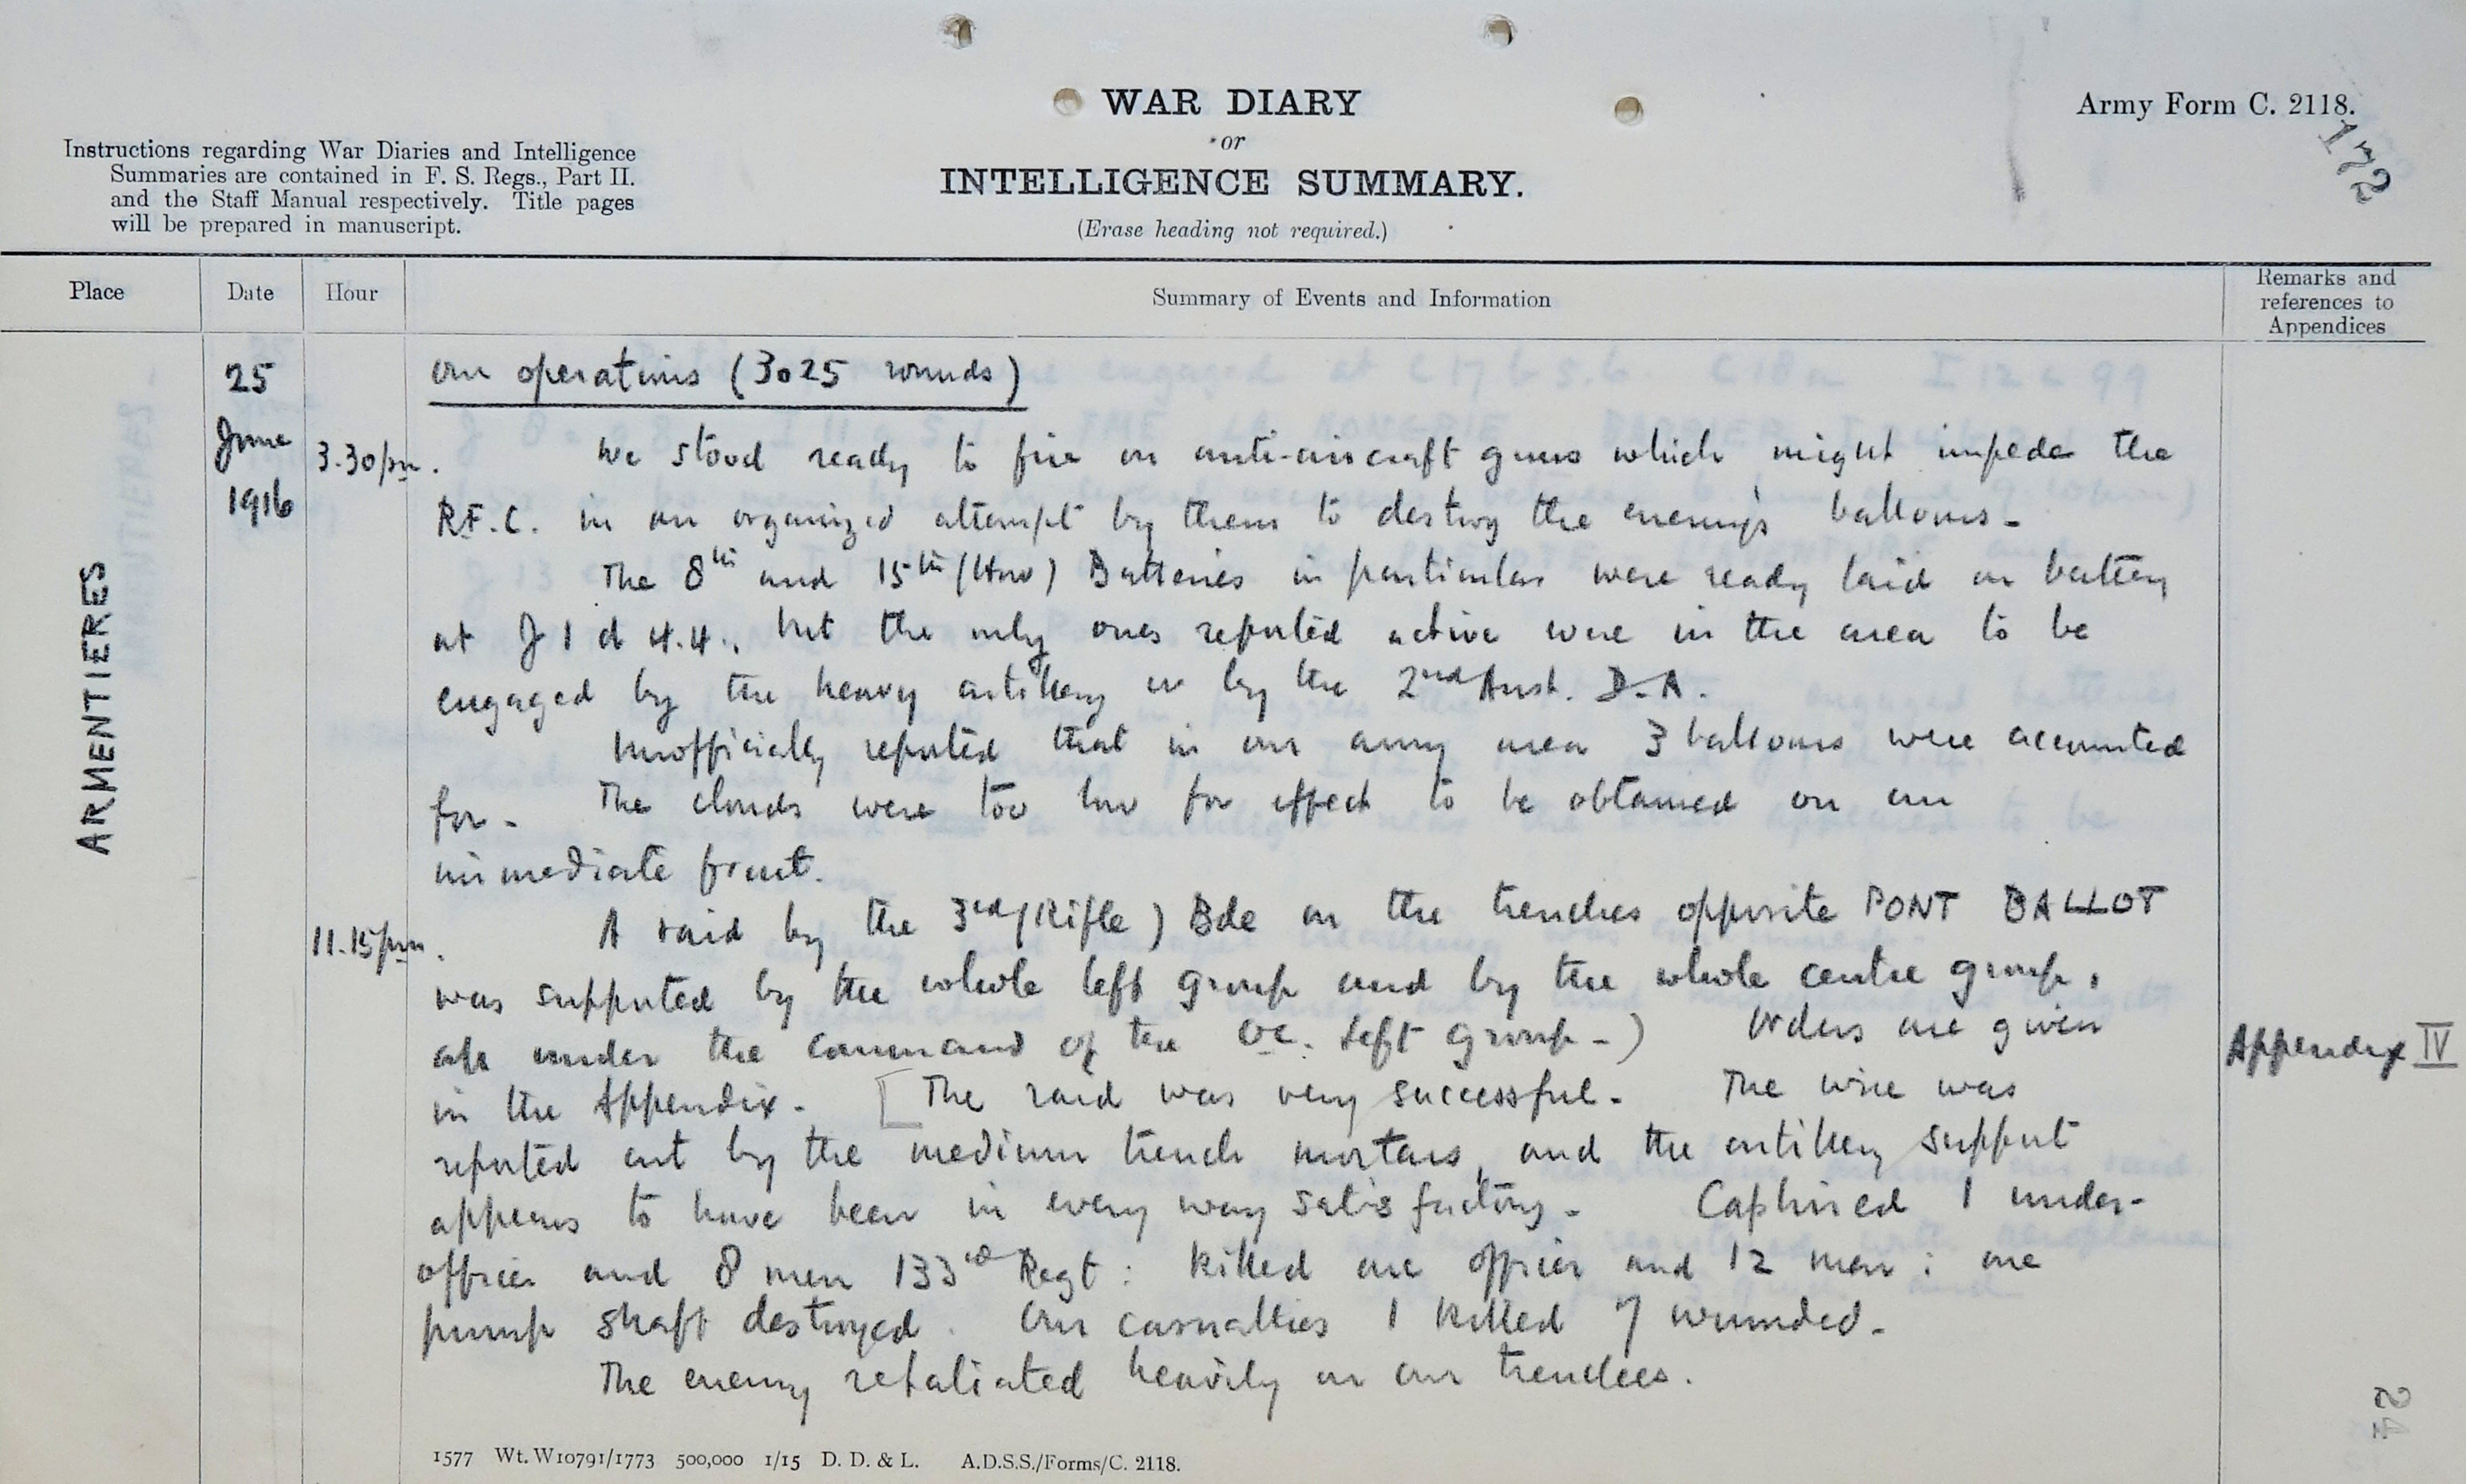 WAR DIARY
or
INTELLIGENCE SUMMARY.
(Erase heading not required.)
Army Form C. 2118.
172
Instructions regarding War Diaries and Intelligence
Summaries are contained in F. S. Regs., Part II.
and the Staff Manual respectively. Title pages
will be prepared in manuscript.
Place Date Hour Summary of Events and Information Remarks and references to Appendices
ARMENTIERES
25 our operations (3025 rounds)
June 3.30pm. We stood ready to fire on anti-aircraft guns which might impede the
1916 R.F.C. in an organized attempt by them to destroy the enemy's balloons.
The 8th and 15th (How) Batteries in particular were ready laid on battery
at J 1 d 4.4., but the only ones reported active were in the area to be
engaged by the heavy artillery or by the 2nd Aust. D.A.
Unofficially reported that in our army area 3 balloons were accounted
for. The clouds were too low for effect to be obtained on our
immediate front.
11.15pm. A raid by the 3rd (Rifle) Bde on the trenches opposite PONT BALLOT
was supported by the whole left group and by the whole centre group,
all under the command of the OC. Left Group.) Orders are given
Appendix IV
in the Appendix. [The raid was very successful. The wire was
reported cut by the medium trench mortars, and the artillery support
appears to have been in every way satisfactory. Captured 1 under-
officer and 8 men 133rd Regt: killed one officer and 12 men; one
pump shaft destroyed. Our casualties 1 killed 7 wounded.
The enemy retaliated heavily on our trenches.
24
1577 Wt. W10791/1773 500,000 1/15 D. D. & L. A.D.S.S./Forms/C. 2118.